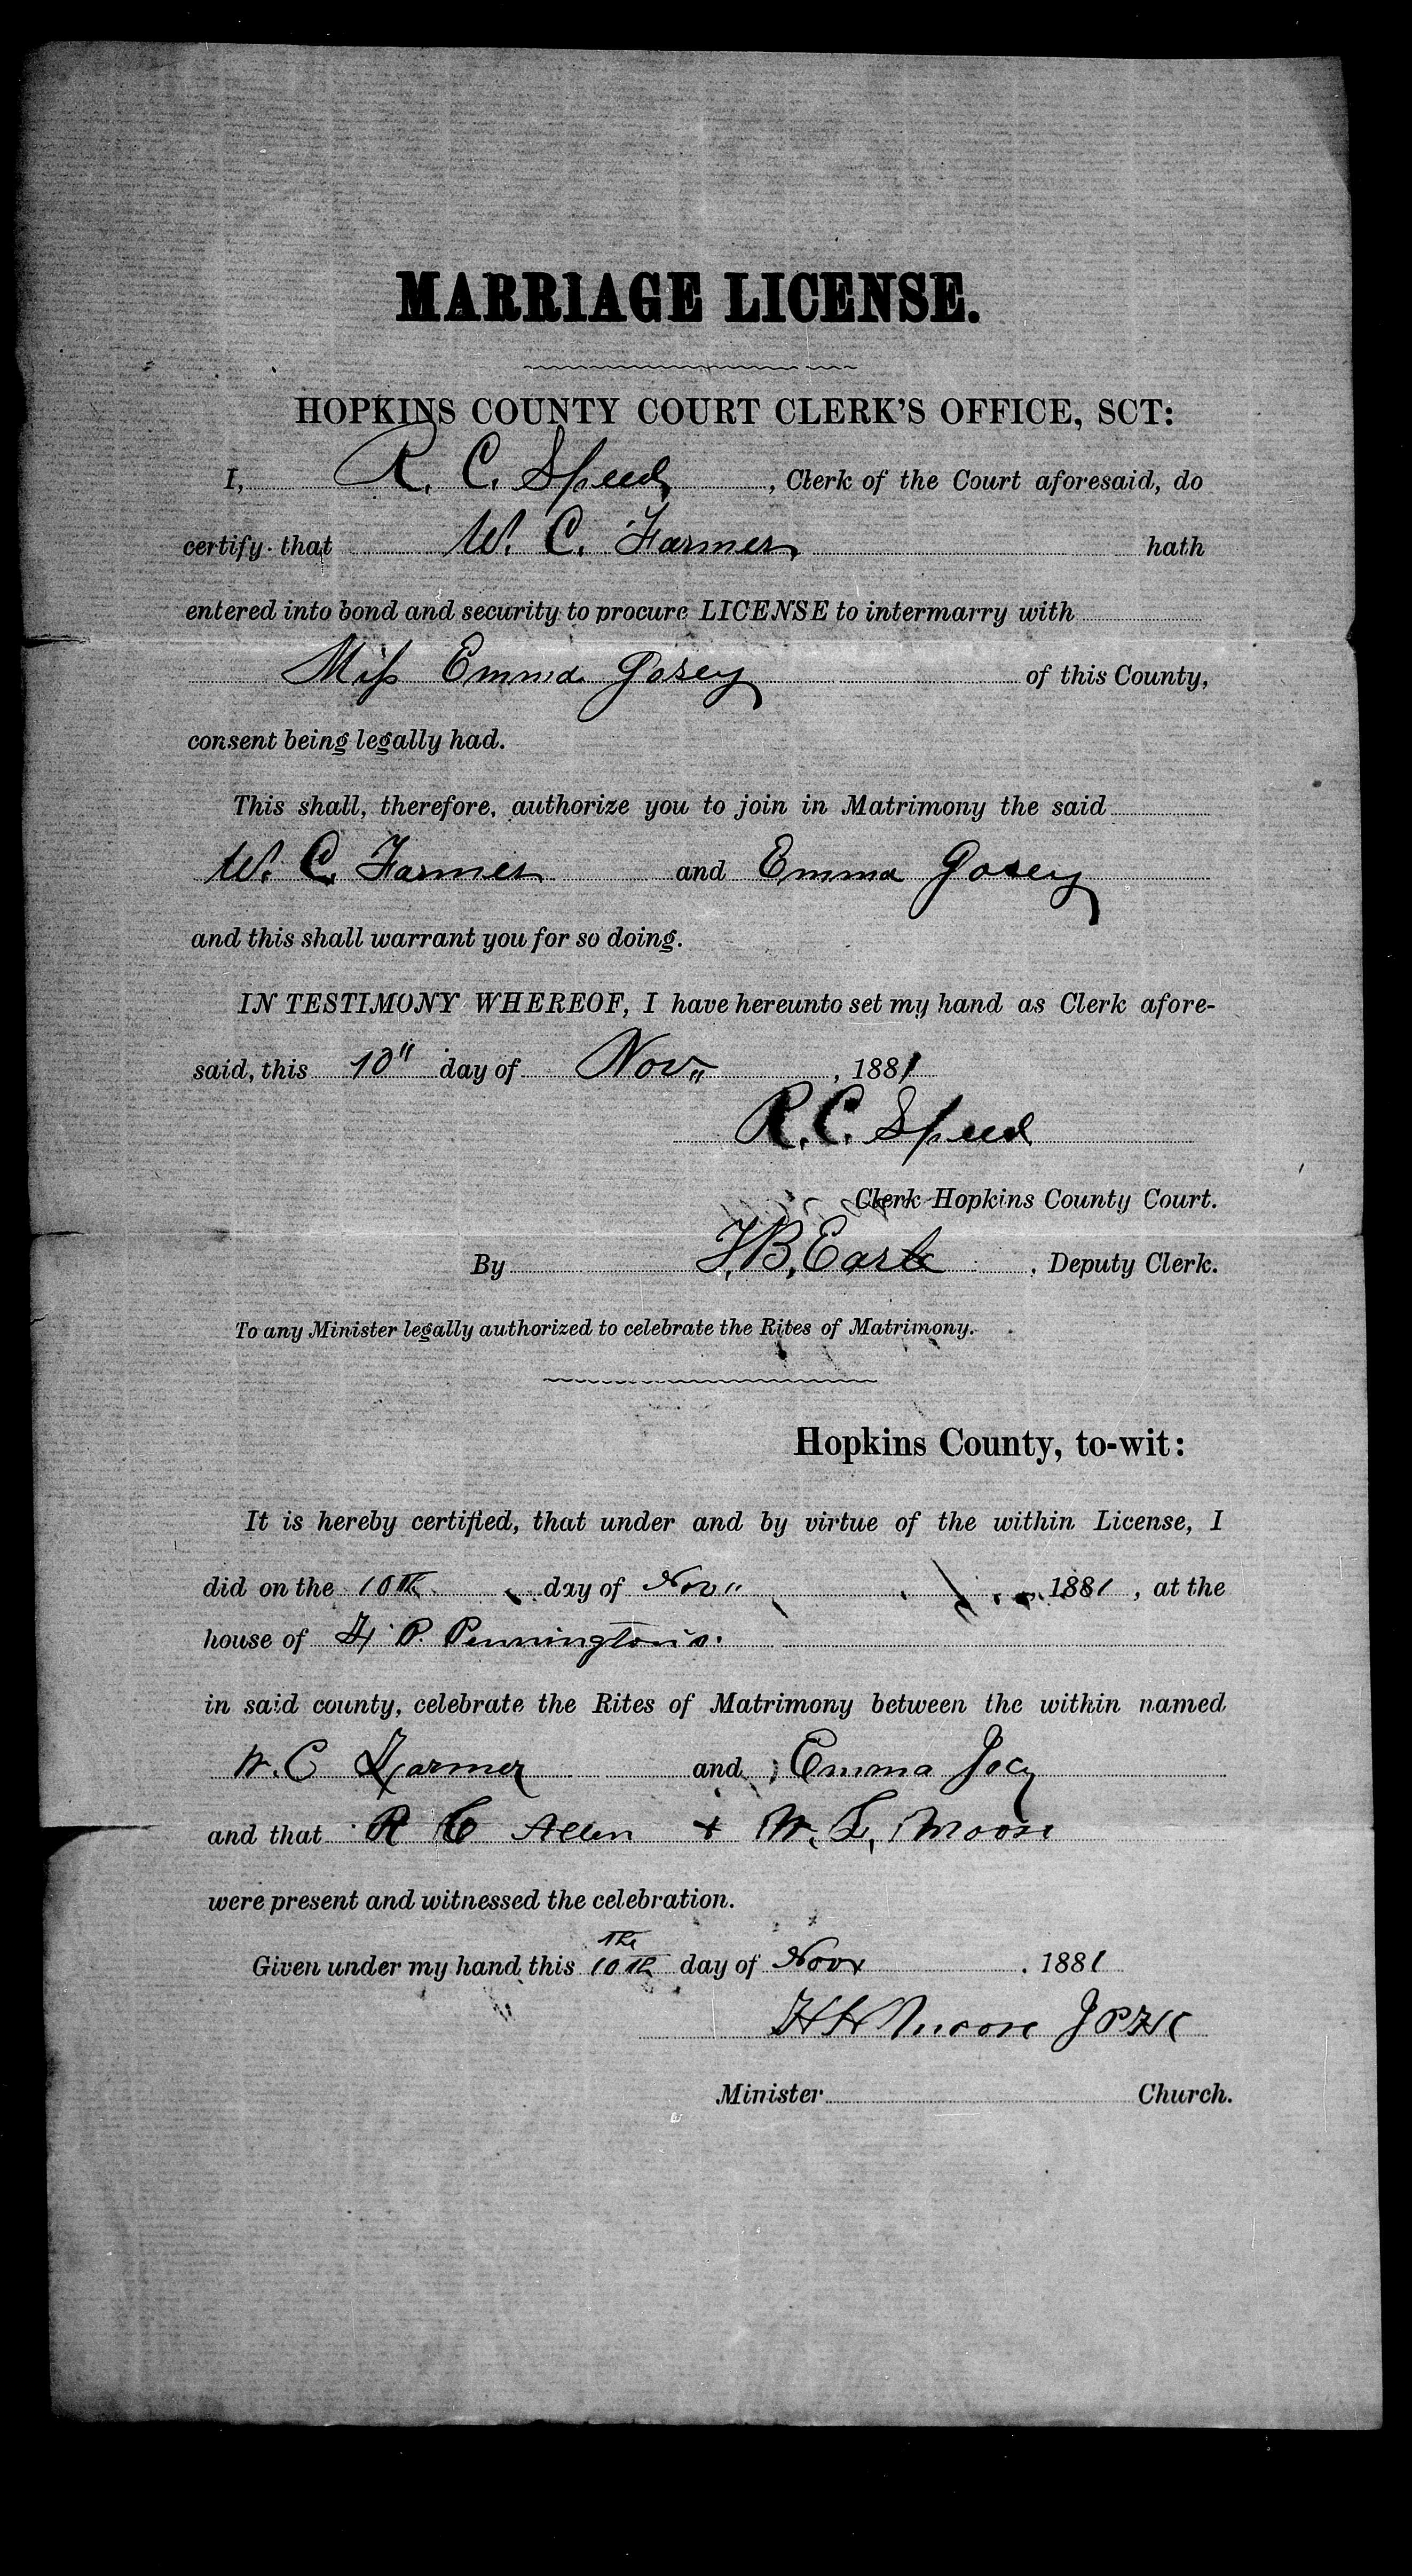 MARRIAGE LICENSE.
HOPKINS COUNTY COURT CLERK'S OFFICE, SCT:
I, R. C. Speed, Clerk of the Court aforesaid, do
certify that W. C. Farmer hath
entered into bond and security to procure LICENSE to intermarry with
Miss Emma Gosey of this County,
consent being legally had.
This shall, therefore, authorize you to join in Matrimony the said
W. C. Farmer and Emma Gosey
and this shall warrant you for so doing.
IN TESTIMONY WHEREOF, I have hereunto set my hand as Clerk afore-
said, this 10" day of Nov", 1881
R. C. Speed
Clerk Hopkins County Court.
By Earle, Deputy Clerk.
To any Minister legally authorized to celebrate the Rites of Matrimony.
Hopkins County, to-wit:
It is hereby certified, that under and by virtue of the within License, I
did on the 10th day of Nov" 1881, at the
house of P. Pennington's.
in said county, celebrate the Rites of Matrimony between the within named
W. C Farmer and Emma
and that R C Allen + W. L. Moore
were present and witnessed the celebration.
Given under my hand this the 10th day of Nov. 1881
H H Moore J P H C
Minister Church.